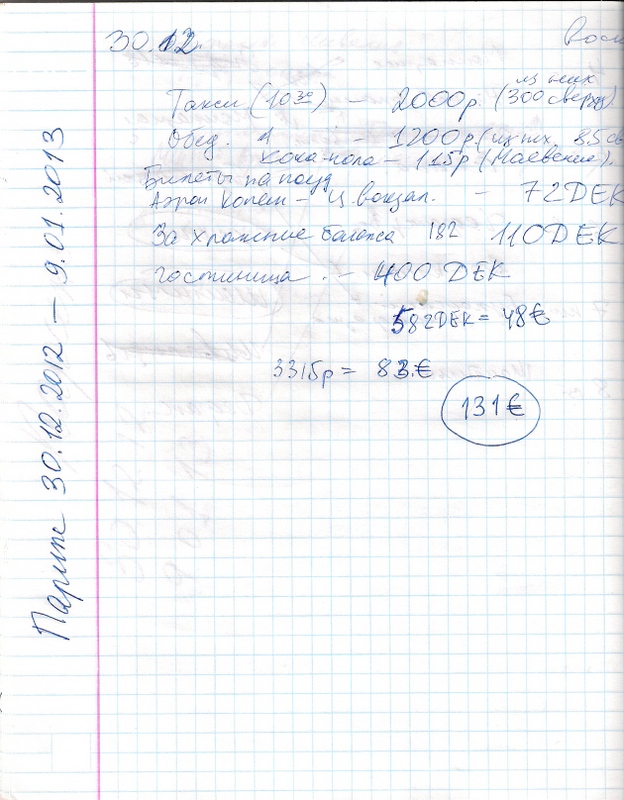 30.12.
Такси (10 30) — 2000р. (из них 300 сверху)
Обед. — 1200р (из них 85
Кока-кола — 115р (Маевским).
Билеты на поезд
Аэроп Копен — Ц. вокзал. — 72DEK
За хранение багажа 182 110DEK
гостиница. — 400 DEK
582DEK = 48€
3315р = 83€
131€
Париж 30.12.2012 — 9.01.2013